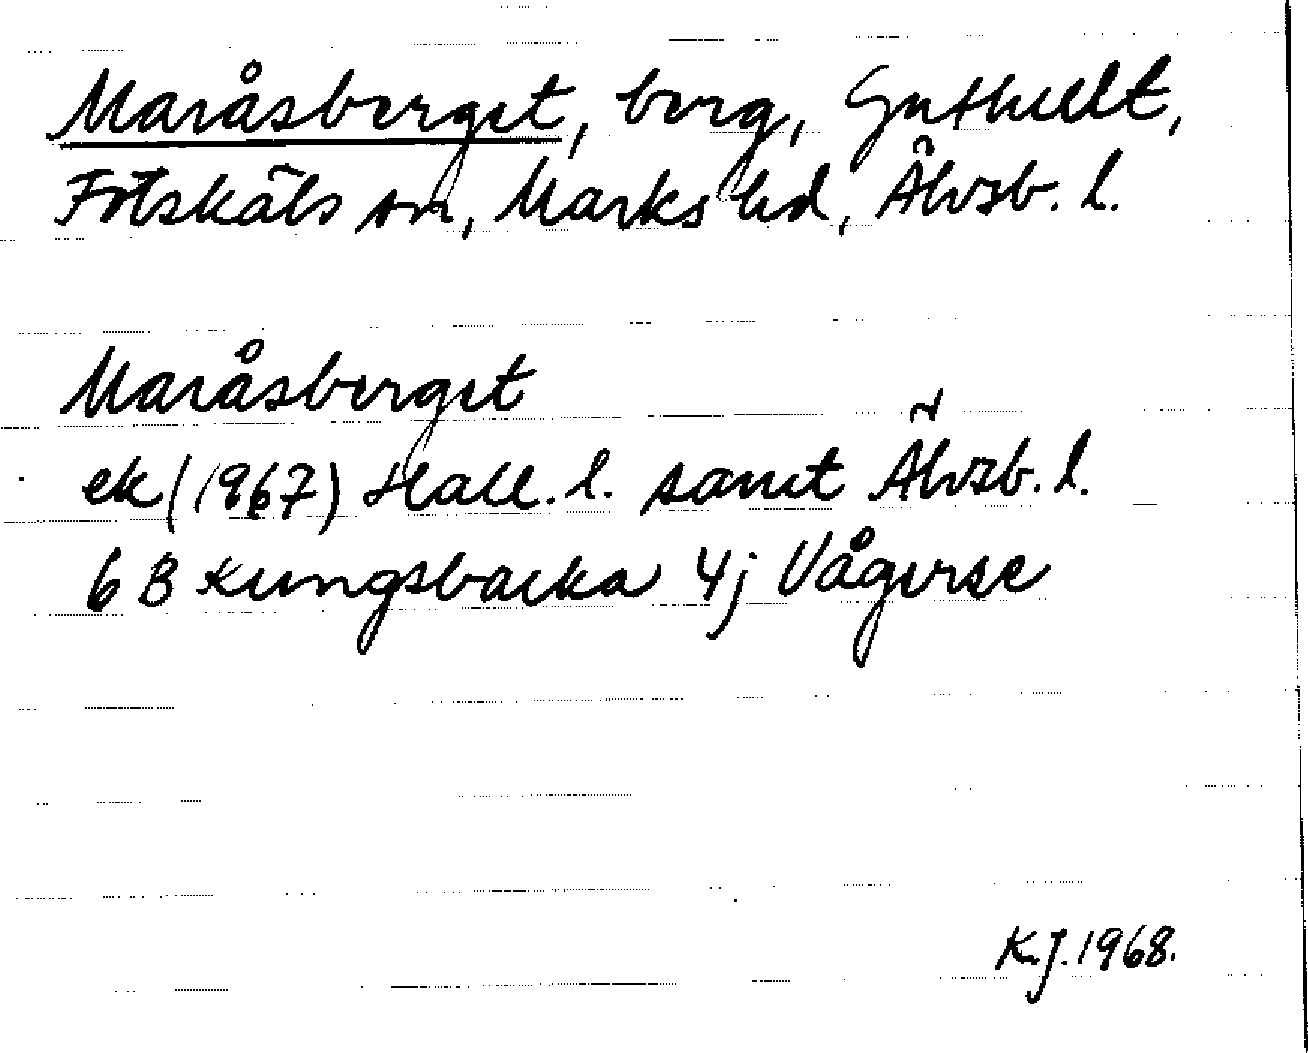 Maråsberget, berg, Gnthult,
Fotskäls sn, Marks hd, Älvsb. l.
Maråsberget
ek (1967) Hall. l. samt Älvsb. l.
6 B Kungsbacka 4j Vågerse
K.J. 1968.